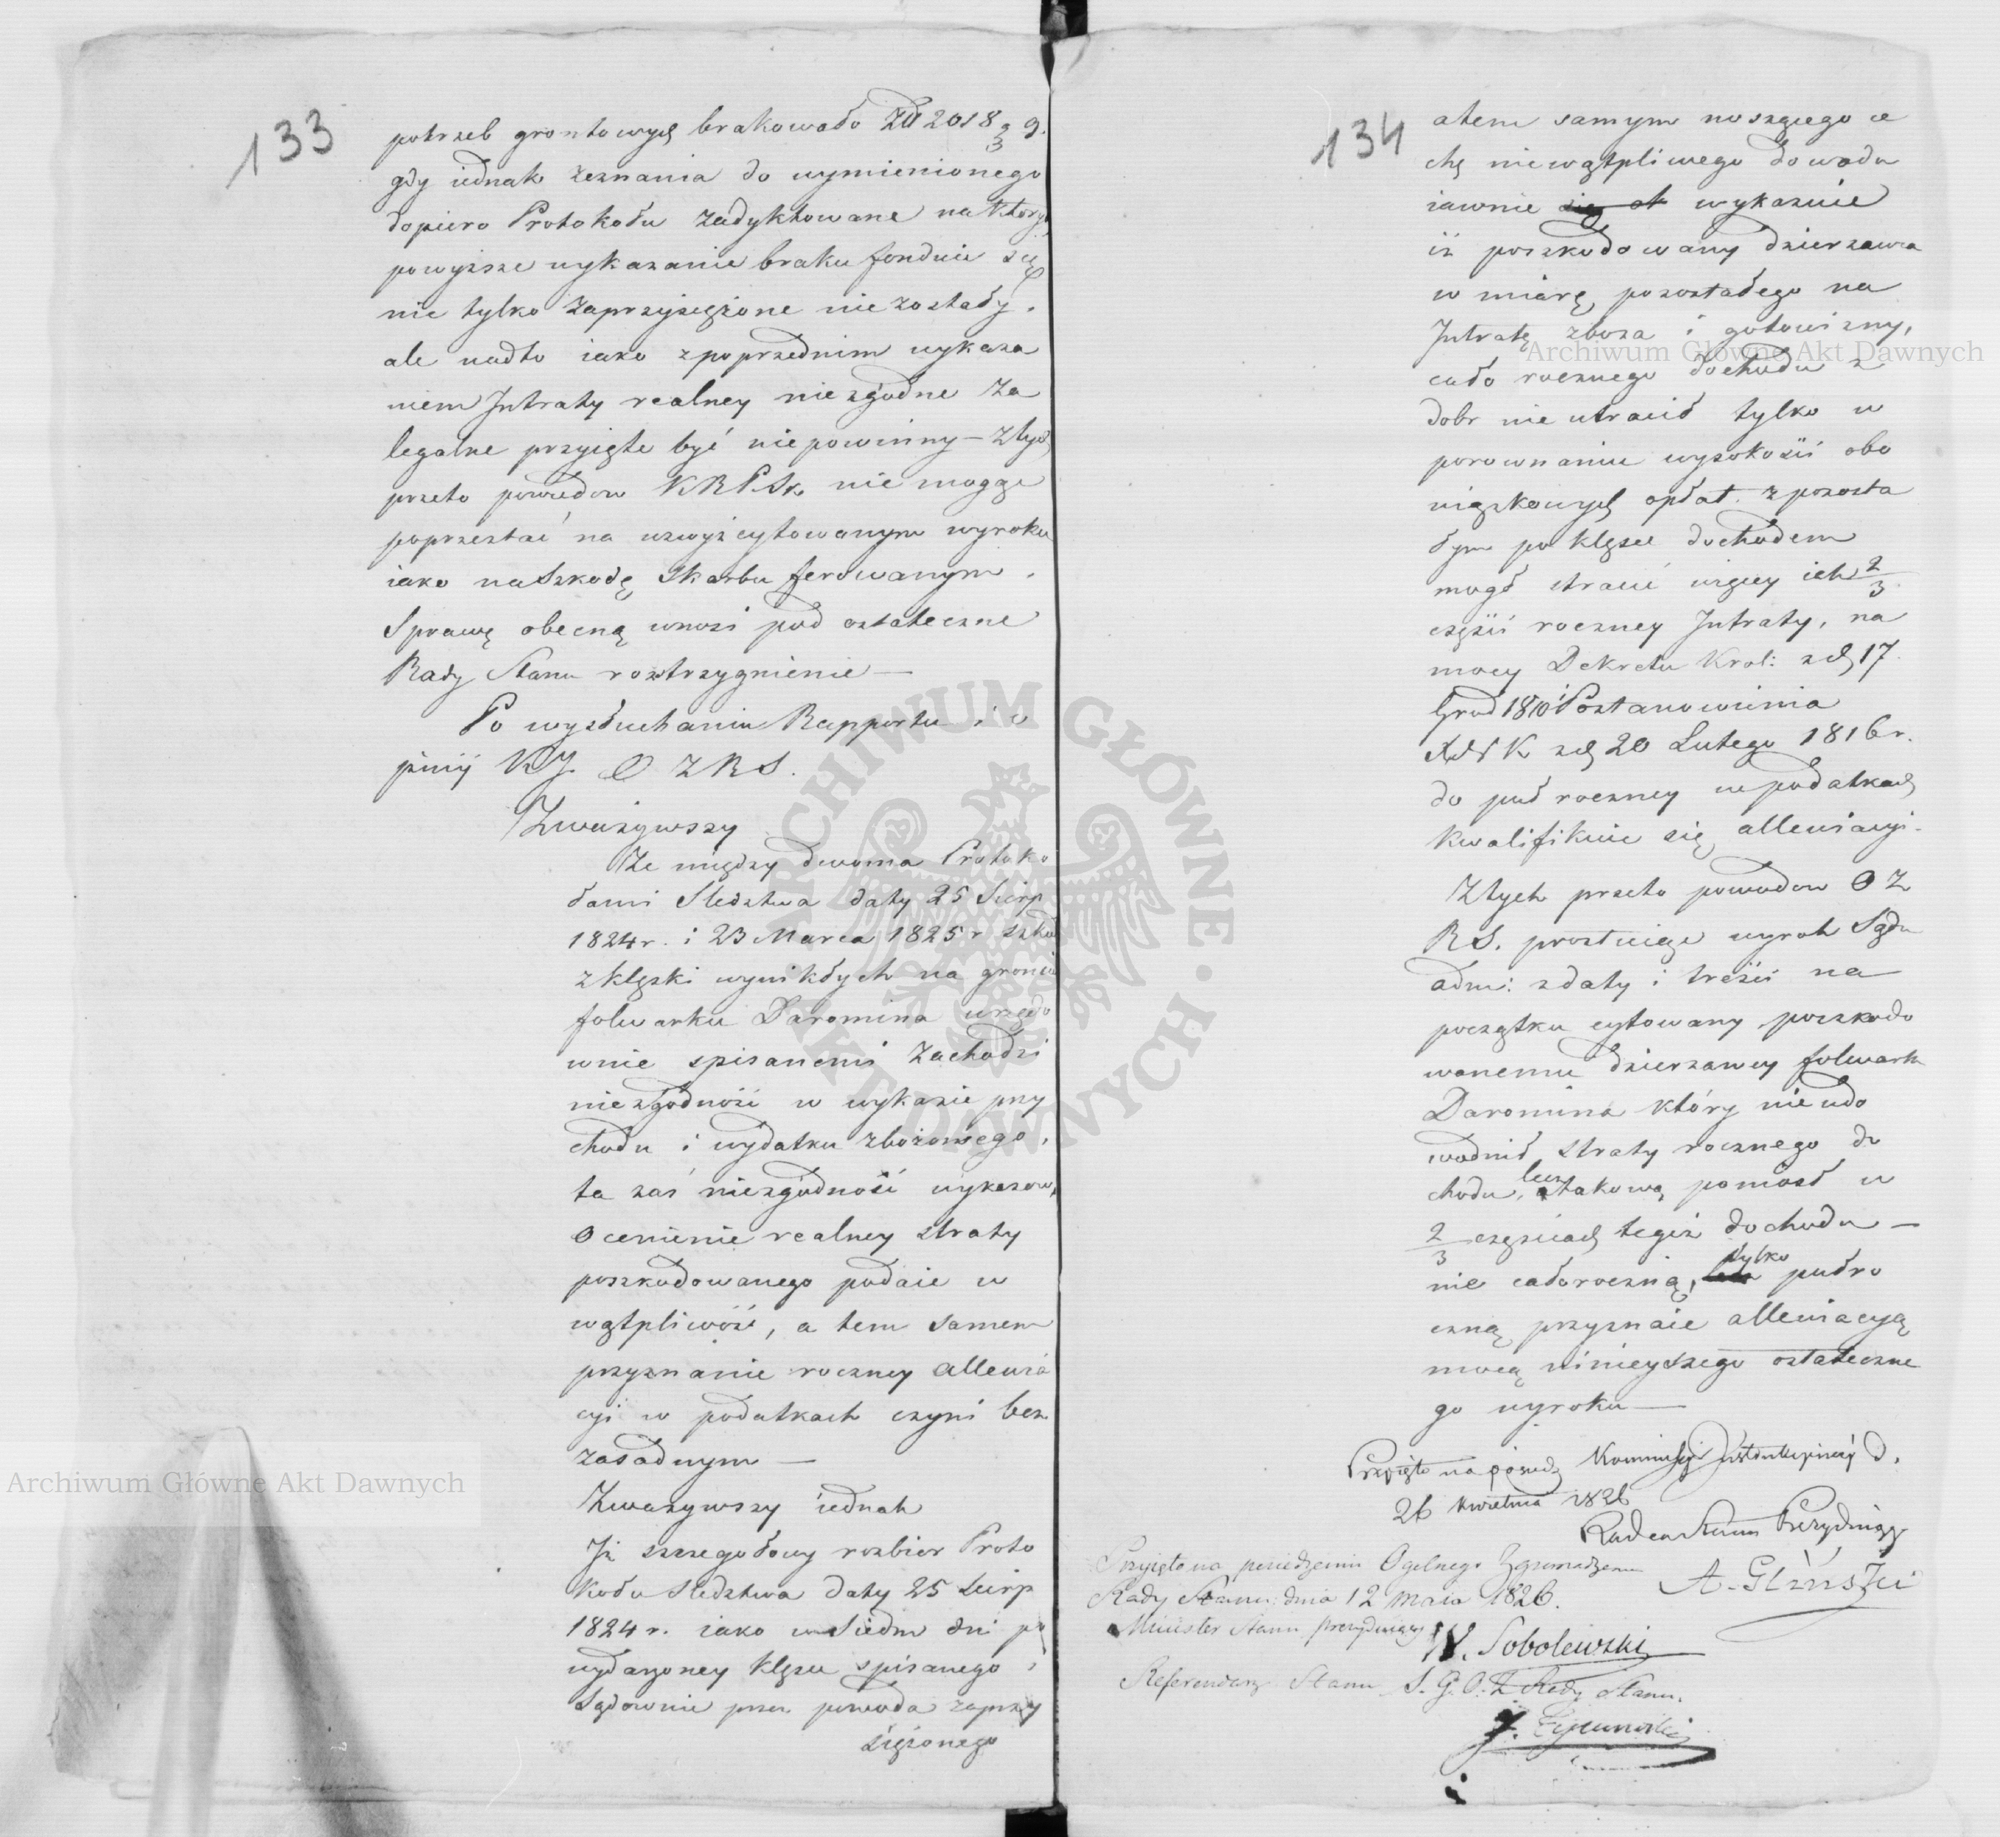 133
potrzeb grontowych brakowało Zł 2018 g. 3
gdy iednak zeznania do wymienionego
dopiero Protokołu zadyktowane na ktorych
powyższe wykazanie braku funduie się
nie tylko zaprzysiężone nie zostały,
ale nadto iako z poprzednim wykaza
niem Intraty realney niezgodne za
legalne przyięte być niepowinny – z tych
przeto powodow KRPSk nie mogąc
poprzestać na wzwyż cytowanym wyroku
iako na Szkodę Skarbu ferowanym,
Sprawę obecną wnosi pod ostateczne
Rady Stanu roztrzygnienie —
Po wysłuchaniu Rapportu i o
pinij KJ. O Z R S.
Zważywszy
Że między dwoma Protoko
łami Sledztwa daty 25 Sierp
1824 r. i 23 Marca 1825 r szkod
z klęski wynikłych na gronci
folwarku Daromina urzędo
wnie spisanemi zachodzi
niezgodność w wykazie przy
chodu i wydatku zbożowego,
ta zaś niezgodność wykazow,
Ocenienie realney straty
poszkodowanego podaie w
wątpliwość, a tem samem
przyznanie roczney allewia
cyi w podatkach czyni bez
zasadnym —
Zważywszy iednak
Iż szczegołowy rozbior Proto
kołu Sledztwa daty 25 Sierp
1824 r. iako w Siedm dni po
wydarzoney klęsce spisanego i
Sądownie przez powoda zaprzy
siężonego
134
a tem samym noszącego ce
chę niewątpliwego dowodu
iawnie się ok wykazuie
iż poszkodowany dzierzawca
w miarę pozostałego na
Intratę zboża i gotowizny,
cało rocznego dochodu z
dobr nie utracił tylko w
porownaniu wysokości obo
wiązkowych opłat z pozosta
łym po klęsce dochodem
mogł stracić więcey iak 2/3
części roczney Intraty, na
mocy Dekretu Krol: z d 17
Grud 1810 i Postanowienia
XNK z d 20 Lutego 1816 r.
do puł roczney w podatkach
kwalifikuie się allewiacyi.
Z tych przeto powodow O Z
R S. prostuiąc wyrok Sądu
adm: z daty i treści na
początku cytowany, poszkodo
wanemu dzierzawcy folwark
Daromina który nie udo
wodnił straty rocznego do
chodu, lecz takową pomosł w
2/3 częściach tegoż dochodu —
nie całoroczną, tylko pułro
czną przyznaie allewiacyą
mocą ninieyszego ostateczne
go wyroku —
Przyięto na posiedz Kommissyi Instrukcyiney d.
26 kwietnia 1826
Radca Stanu Prezyduiący
A. Gliński
Przyięto na posiedzeniu Ogolnego Zgromadzenia
Rady Stanu dnia 12 Maia 1826.
Minister Stanu Prezyduiący W. Sobolewski
Referendarz Stanu S. G. O. Z Rady Stanu.
Archiwum Główne Akt Dawnych
Archiwum Główne Akt Dawnych
ARCHIWUM GŁÓWNE AKT DAWNYCH